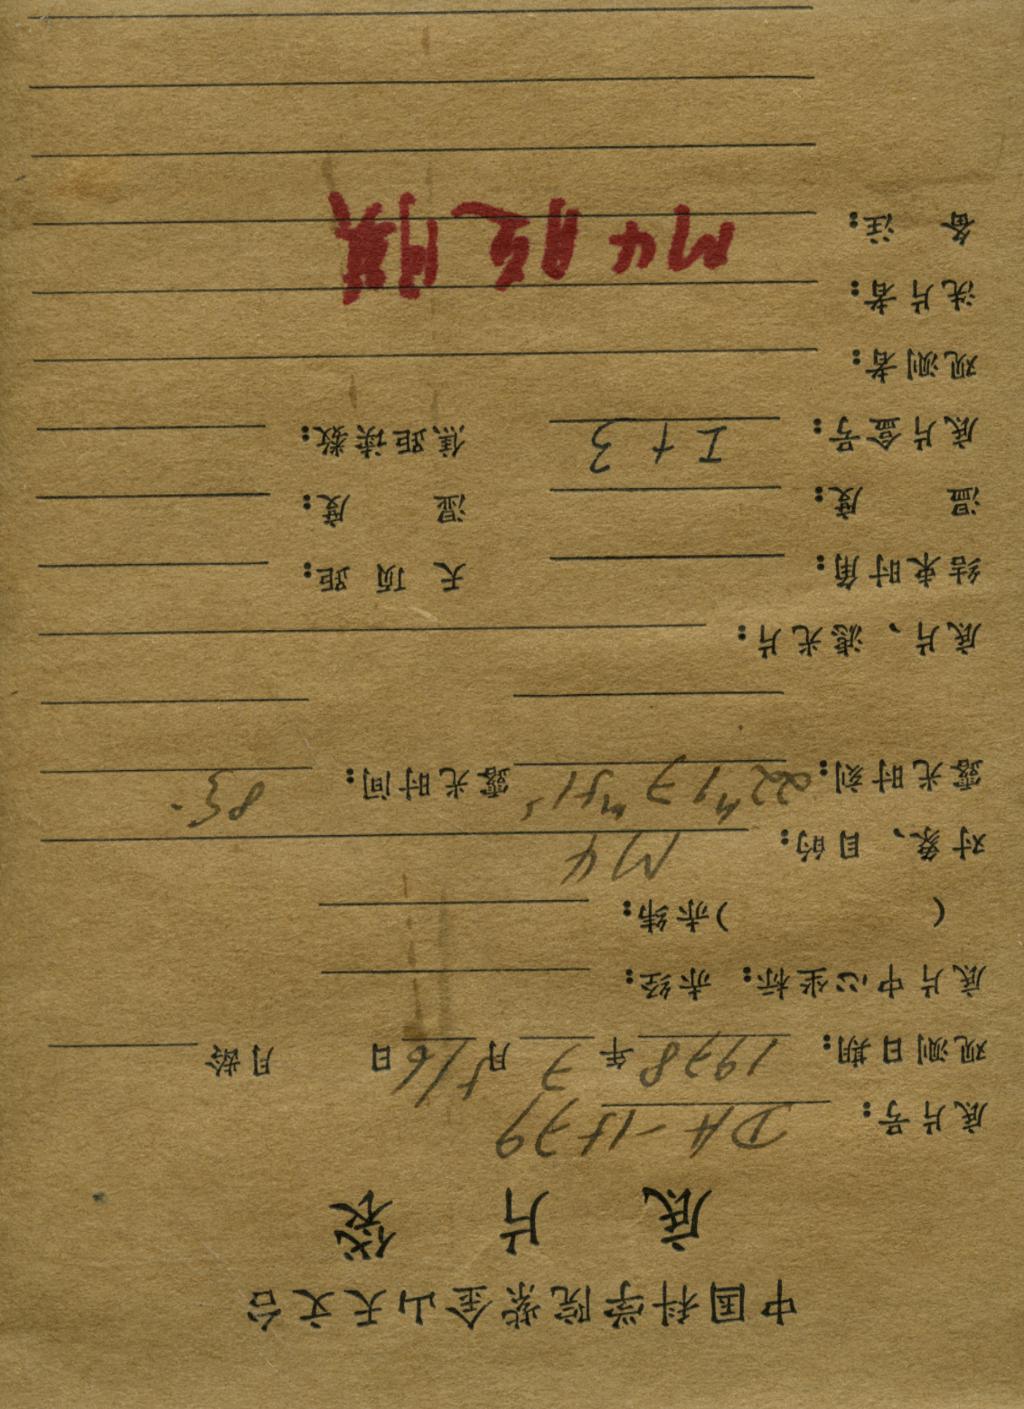 中国科学院紫金山天文台
底 片 袋
底片号: DA-1579
观测日期: 1978年7月5/6日 月龄
底片中心坐标: 赤经:
( )赤纬:
对象、目的: M4
露光时刻: 22h17m51s 露光时间:
底片、滤光片:
结束时角: 天顶距:
温 度: 湿 度:
底片盒号: I+3 焦距读数:
观测者:
洗片者:
备 注: M4